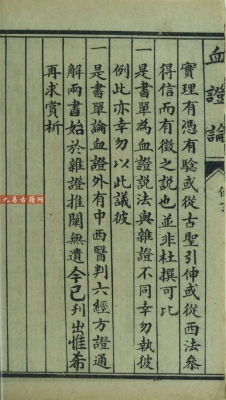 血證論
實理有憑有驗或從古聖引伸或從西法參
得信而有徵之說也並非杜撰可比
一是書單為血證說法與雜證不同幸勿執彼
例此亦幸勿以此議彼
一是書單論血證外有中西醫判六經方證通
解兩書始於雜證推闡無遺今已列出惟希
再求賞析
九易古籍网